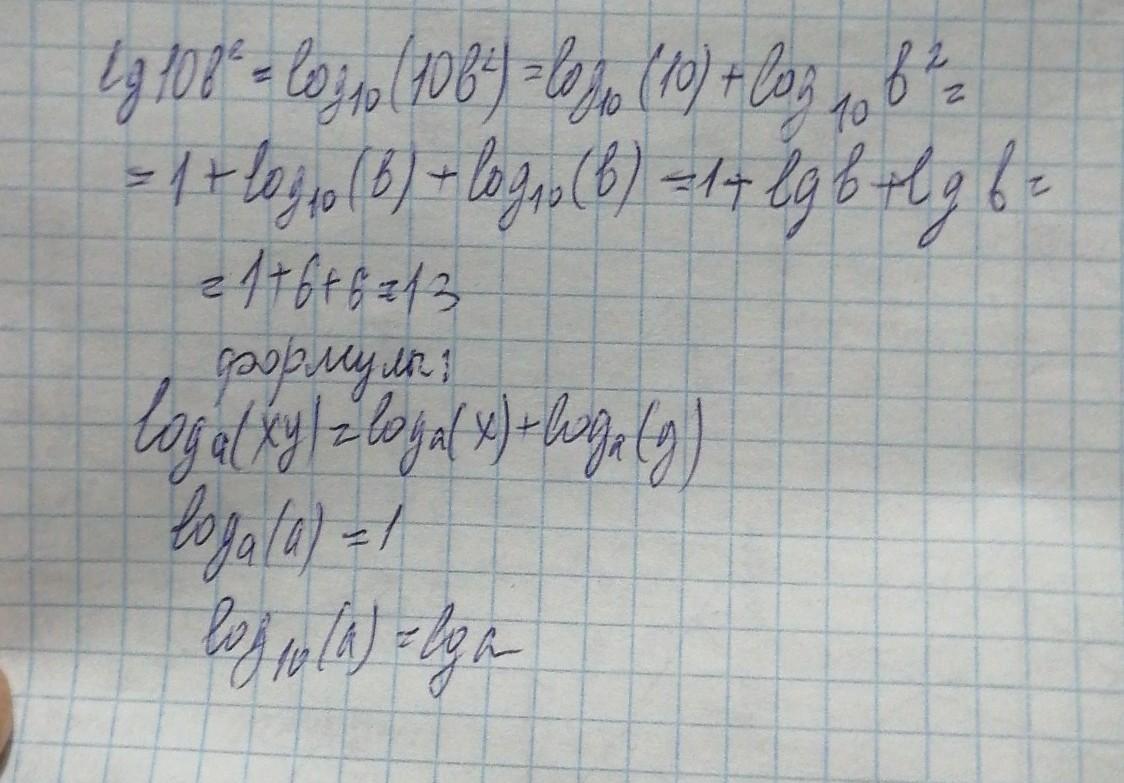 lg 10b² = log₁₀(10b²) = log₁₀(10) + log₁₀ b² =
= 1 + log₁₀(b) + log₁₀(b) = 1 + lg b + lg b =
= 1 + 6 + 6 = 13
формулы:
logₐ(xy) = logₐ(x) + logₐ(y)
logₐ(a) = 1
log₁₀(a) = lg a